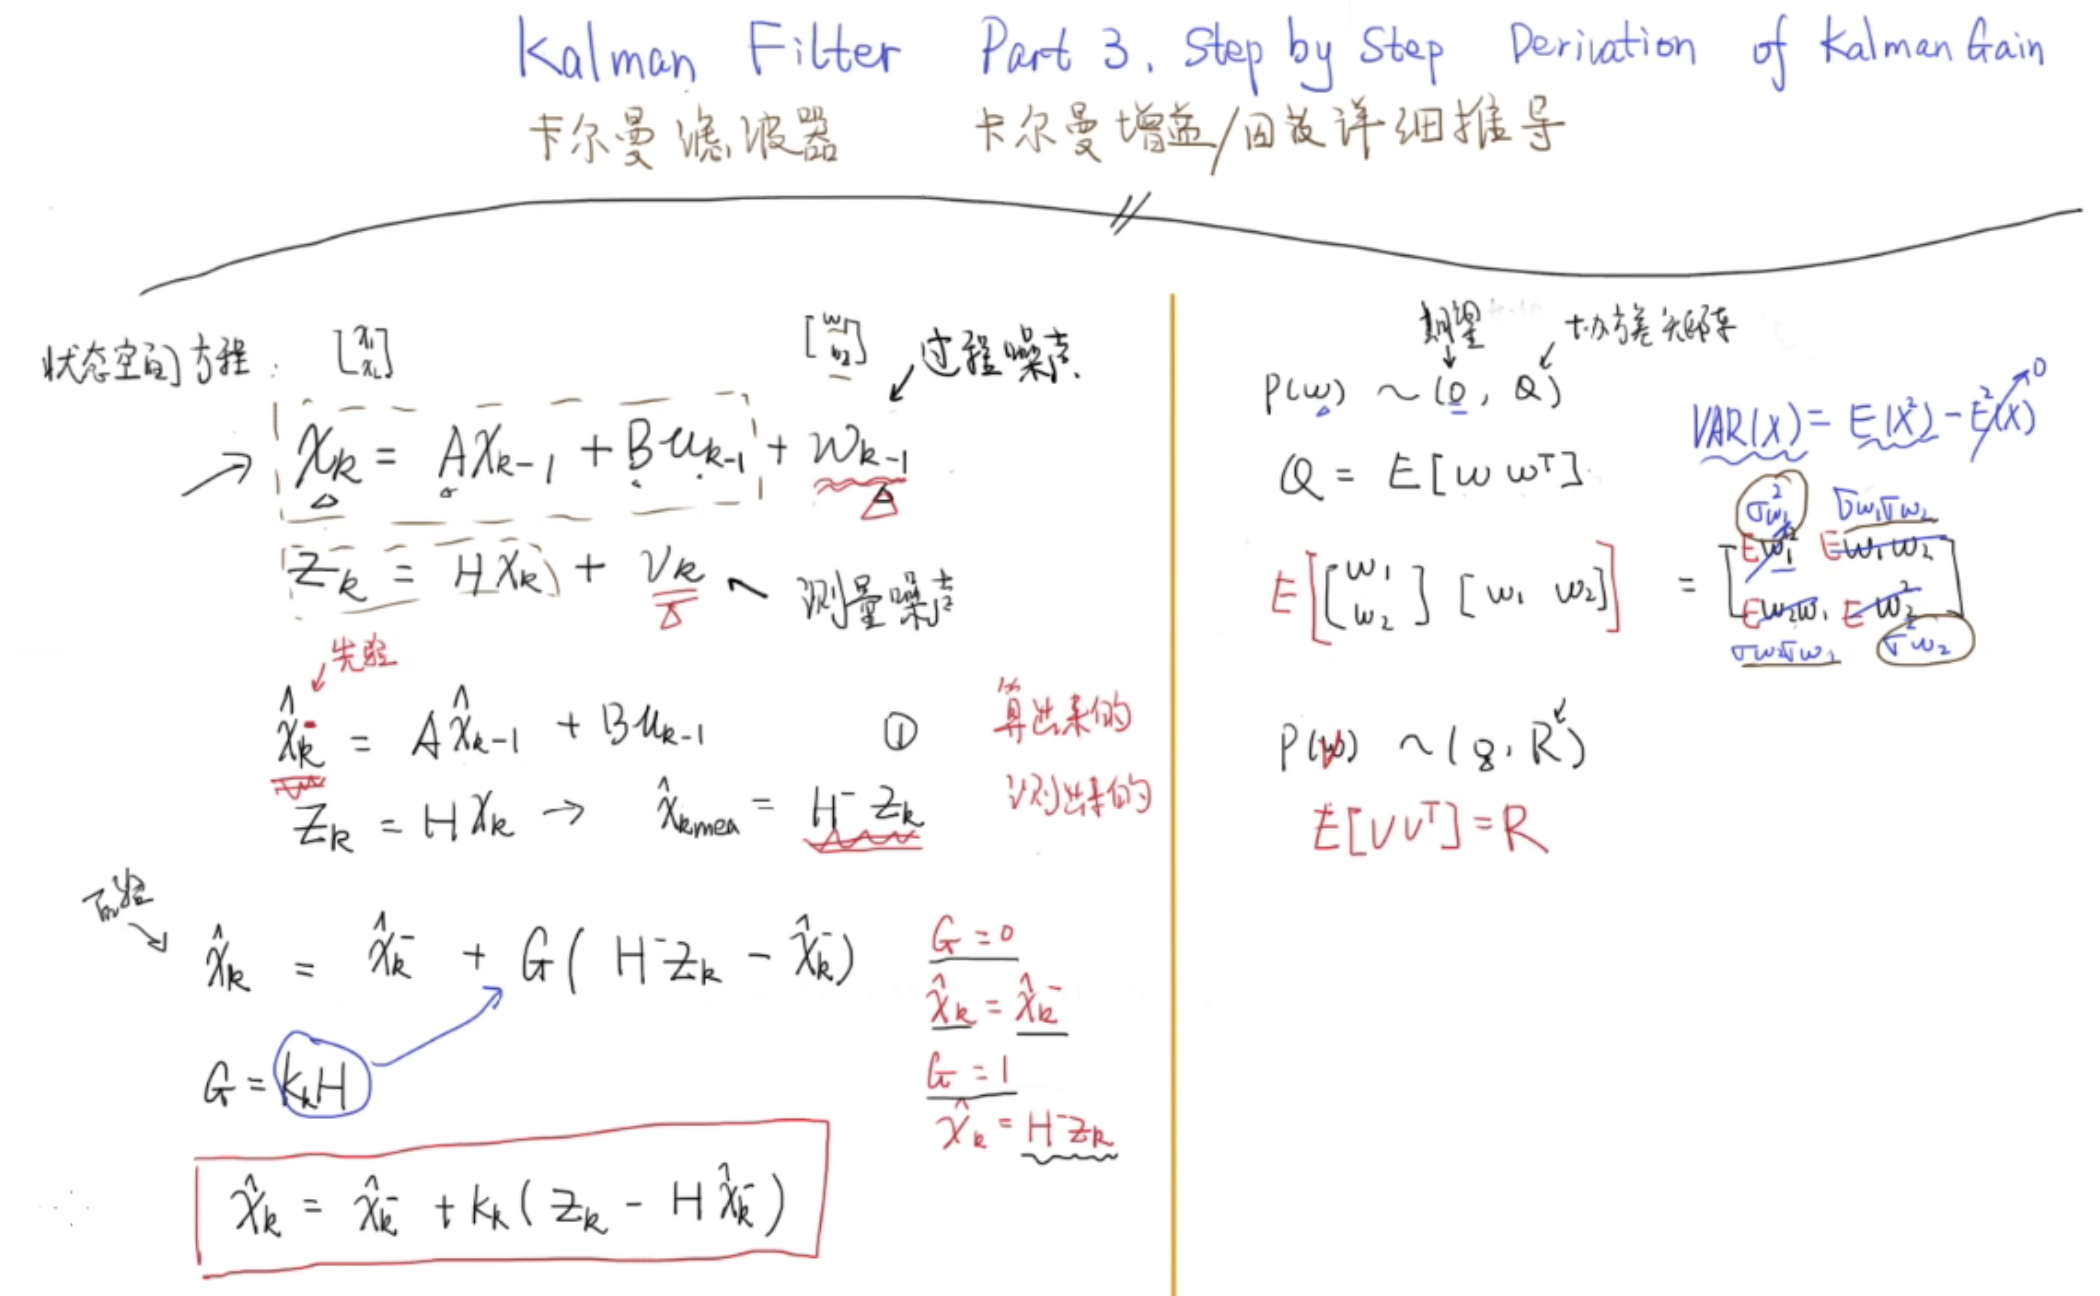 Kalman Filter Part 3. Step by Step Derivation of Kalman Gain
卡尔曼滤波器 卡尔曼增益/因数详细推导
状态空间方程: [x₁ x₂] [w₁ w₂] 过程噪声.
X_k = AX_{k-1} + Bu_{k-1} + w_{k-1}
Z_k = HX_k + V_k ~ 测量噪声
先验
x̂_k⁻ = Ax̂_{k-1} + Bu_{k-1} ① 算出来的
Z_k = HX_k → x̂_{kmea} = H⁻Z_k 测出来的
后验
x̂_k = x̂_k⁻ + G(H⁻Z_k - x̂_k⁻)
G = K_kH
x̂_k = x̂_k⁻ + K_k(Z_k - Hx̂_k⁻)
G = 0
x̂_k = x̂_k⁻
G = 1
x̂_k = H⁻Z_k
期望 协方差矩阵
P(w) ~ (0, Q)
VAR(X) = E(X²) - E²(X) 0
Q = E[w wᵀ]
σ²w₁ σw₁σw₂
E[[w₁ w₂] [w₁ w₂]] = [Ew₁² Ew₁w₂
Ew₂w₁ Ew₂²]
σw₂σw₁ σ²w₂
P(v) ~ (0, R)
E[VVᵀ] = R